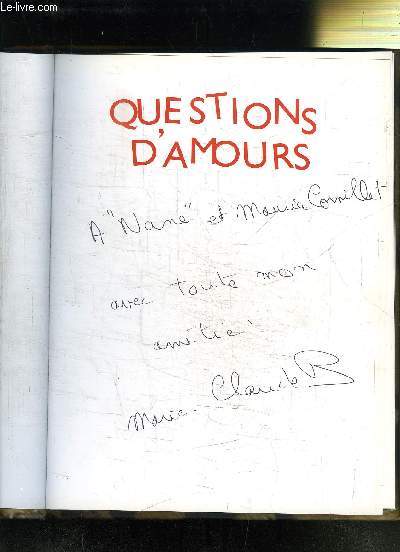 Le-livre.com
QUESTIONS
D'AMOURS
A "Nane" et Maurice
avec toute mon
amitié
Marie-Claude B